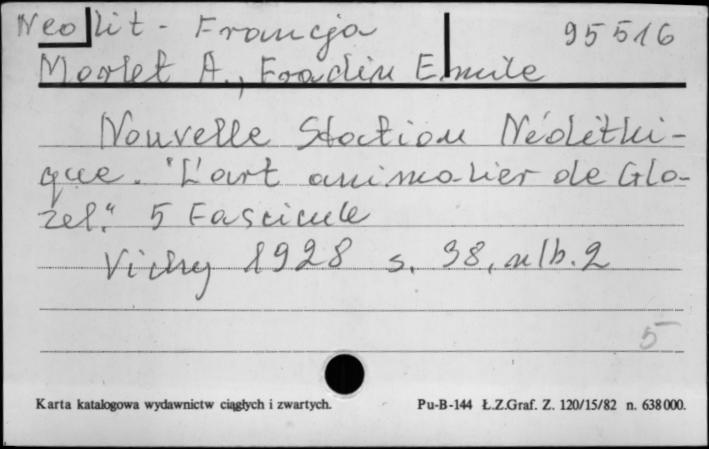 Neolit - Francja 95516
Morlet A., Fradin Emile
Nouvelle Station Néolithi-
que. "L'art animalier de Glo-
zel." 5 Fascicule
Vichy 1928 s. 38, nlb. 2
5
Karta katalogowa wydawnictw ciągłych i zwartych. Pu-B-144 Ł.Z.Graf. Z. 120/15/82 n. 638000.